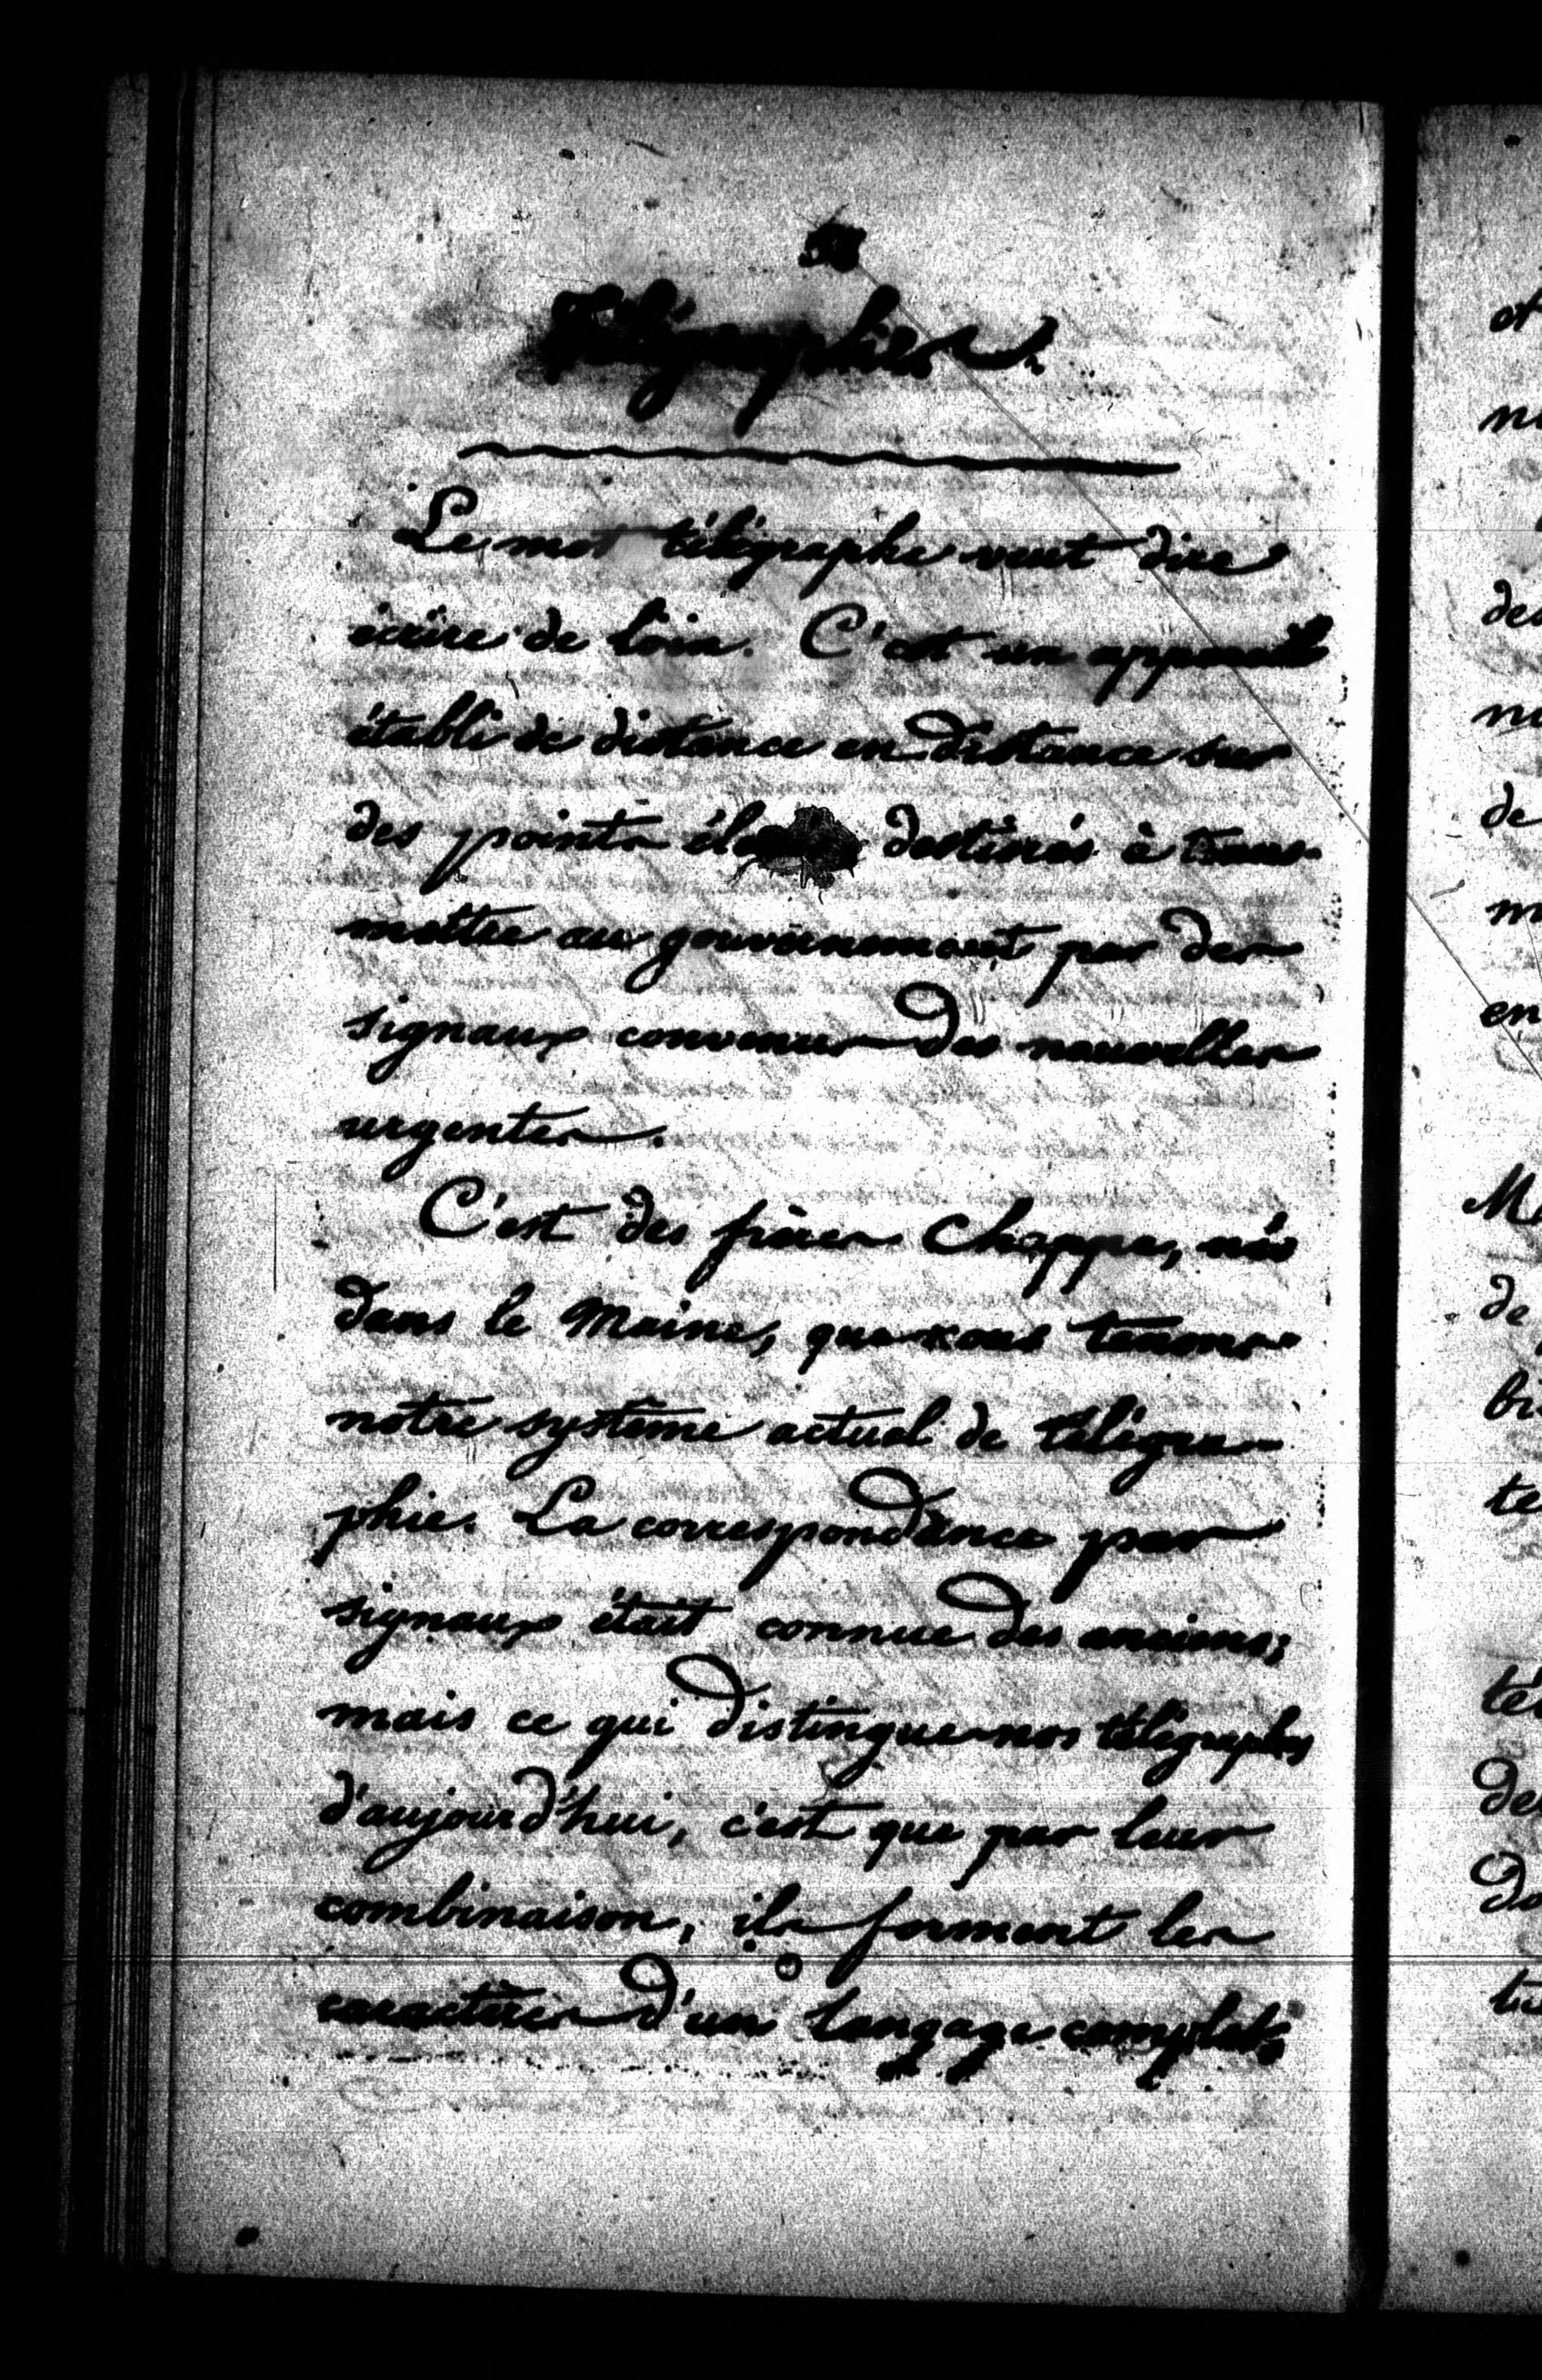 Télégraphes.
Le mot télégraphe veut dire
écrire de loin. C'est un appareil
établi de distance en distance sur
des points destinés à trans-
mettre au gouvernement par des
signaux convenus des nouvelles
urgentes.
C'est des frères Chappe, nés
dans le Maine, que nous tenons
notre système actuel de télégra-
phie. La correspondance par
signaux était connue des anciens;
mais ce qui distingue nos télégraphes
d'aujourd'hui, c'est que par leur
combinaison, ils forment les
caractères d'un langage complet.
de
te